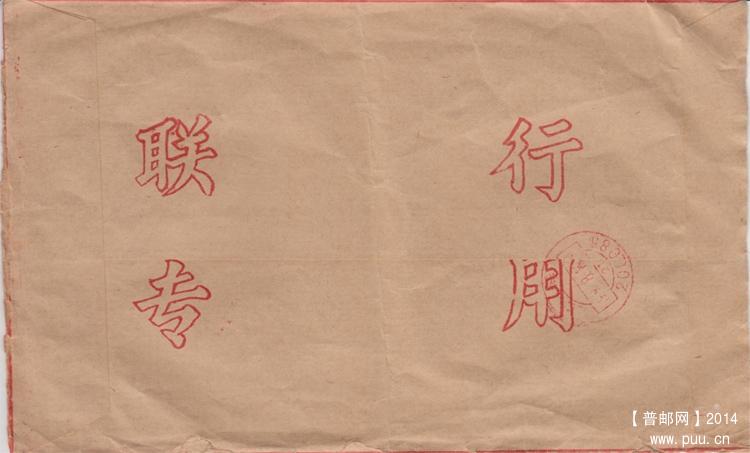 联 行
专 用
【普邮网】2014
www.puu.cn